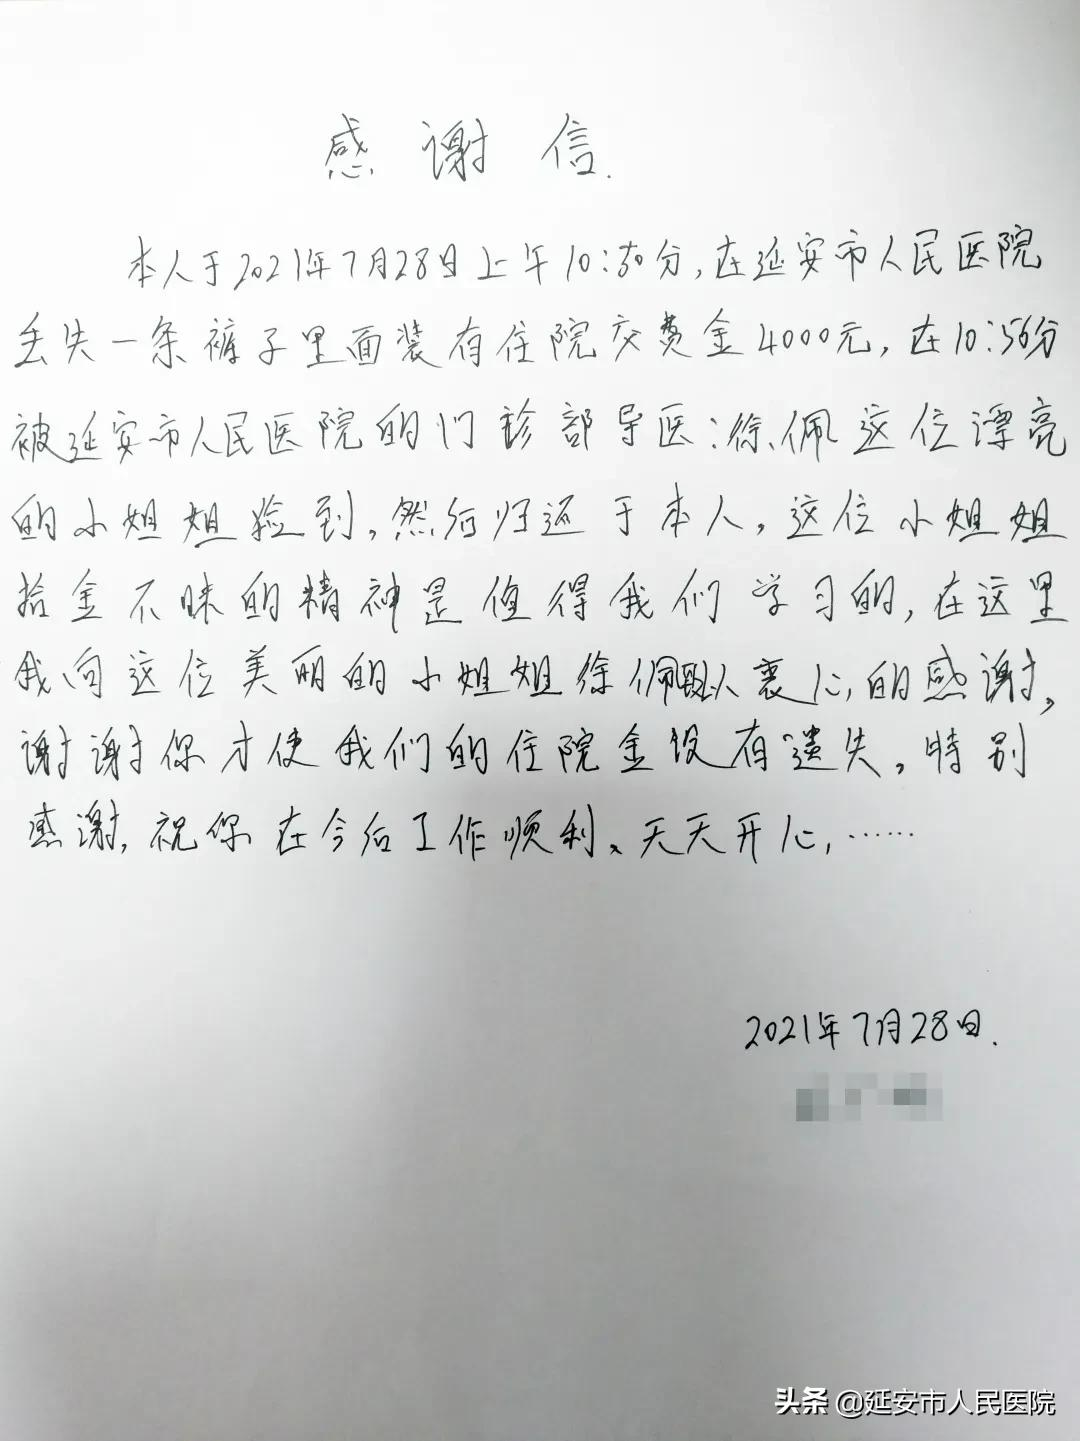 感谢信.
本人于2021年7月28日上午10:50分,在延安市人民医院
丢失一条裤子里面装有住院交费金4000元,在10:56分
被延安市人民医院的门诊部导医:徐佩这位漂亮
的小姐姐捡到,然后归还于本人,这位小姐姐
拾金不昧的精神是值得我们学习的,在这里
我向这位美丽的小姐姐徐佩致以衷心的感谢,
谢谢你才使我们的住院金没有遗失,特别
感谢,祝你在今后工作顺利、天天开心,……
2021年7月28日.
头条 @延安市人民医院